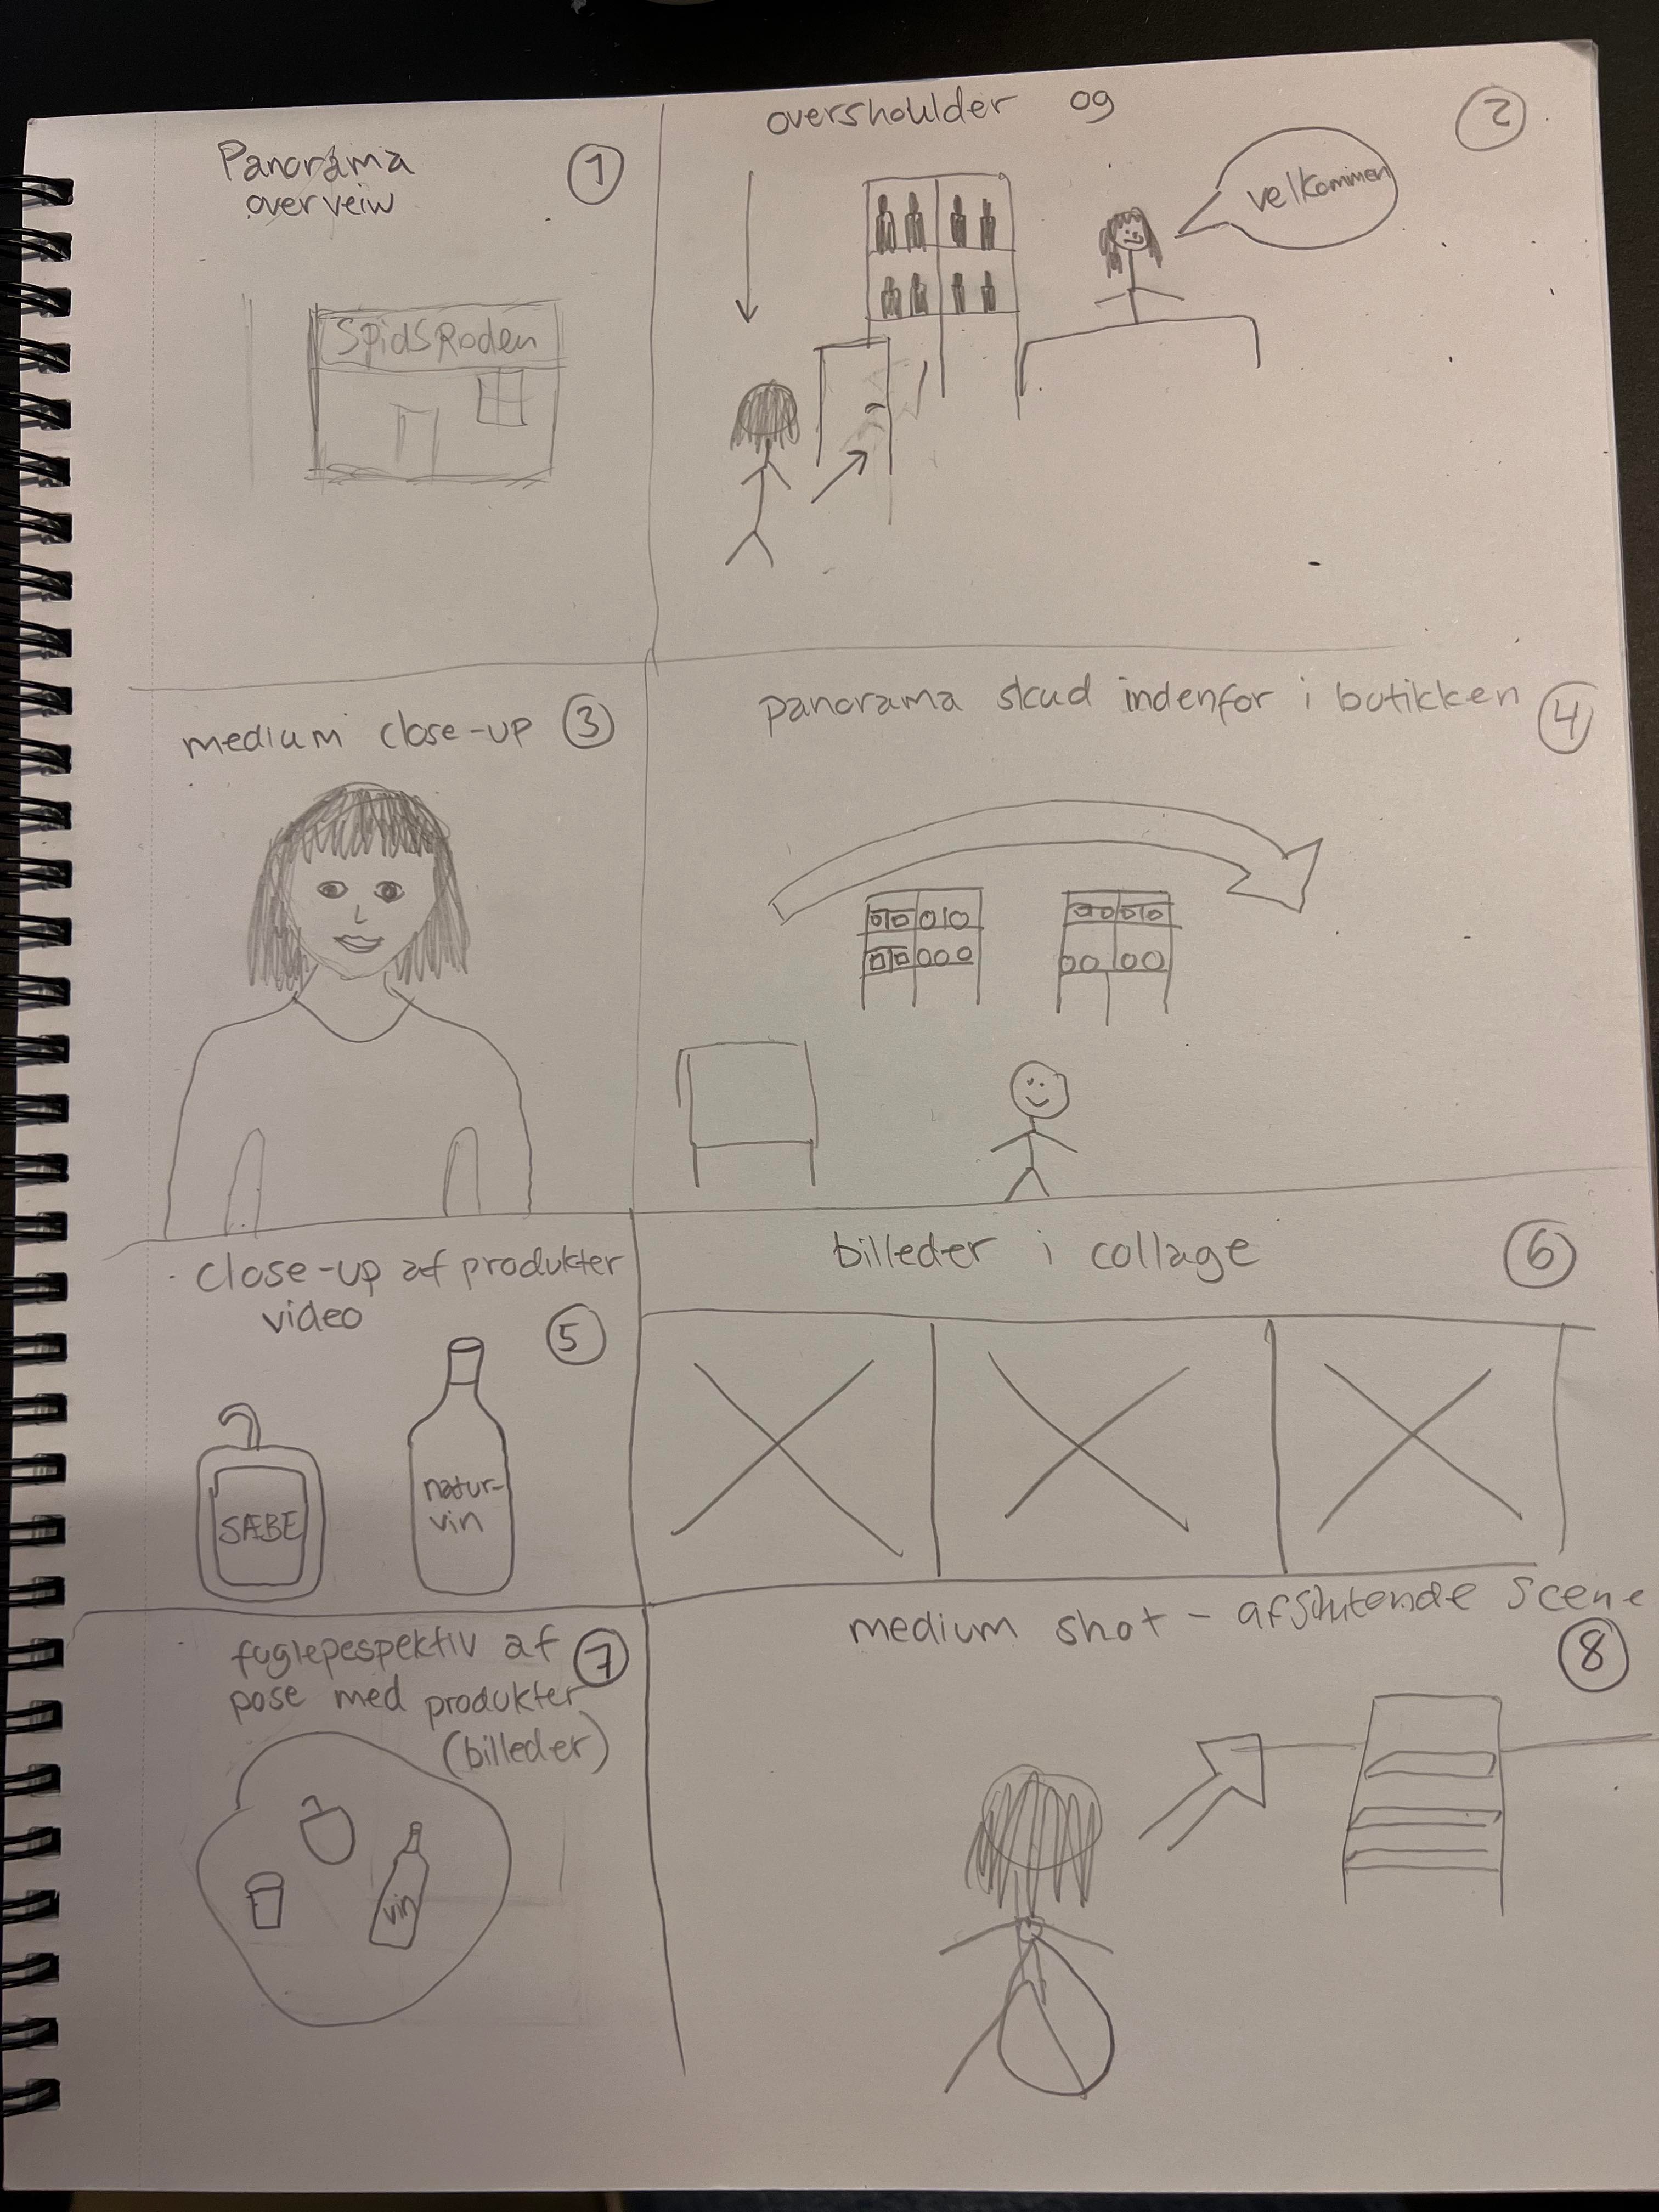 Panorama
overveiw
1
SPidSRoden
overshoulder og
2
velkommen
medium close-up
3
panorama skud indenfor i butikken
4
close-up af produkter
video
5
SÆBE
natur-
vin
billeder i collage
6
fuglepespektiv af
pose med produkter
(billeder)
7
vin
medium shot - afslutende scene
8